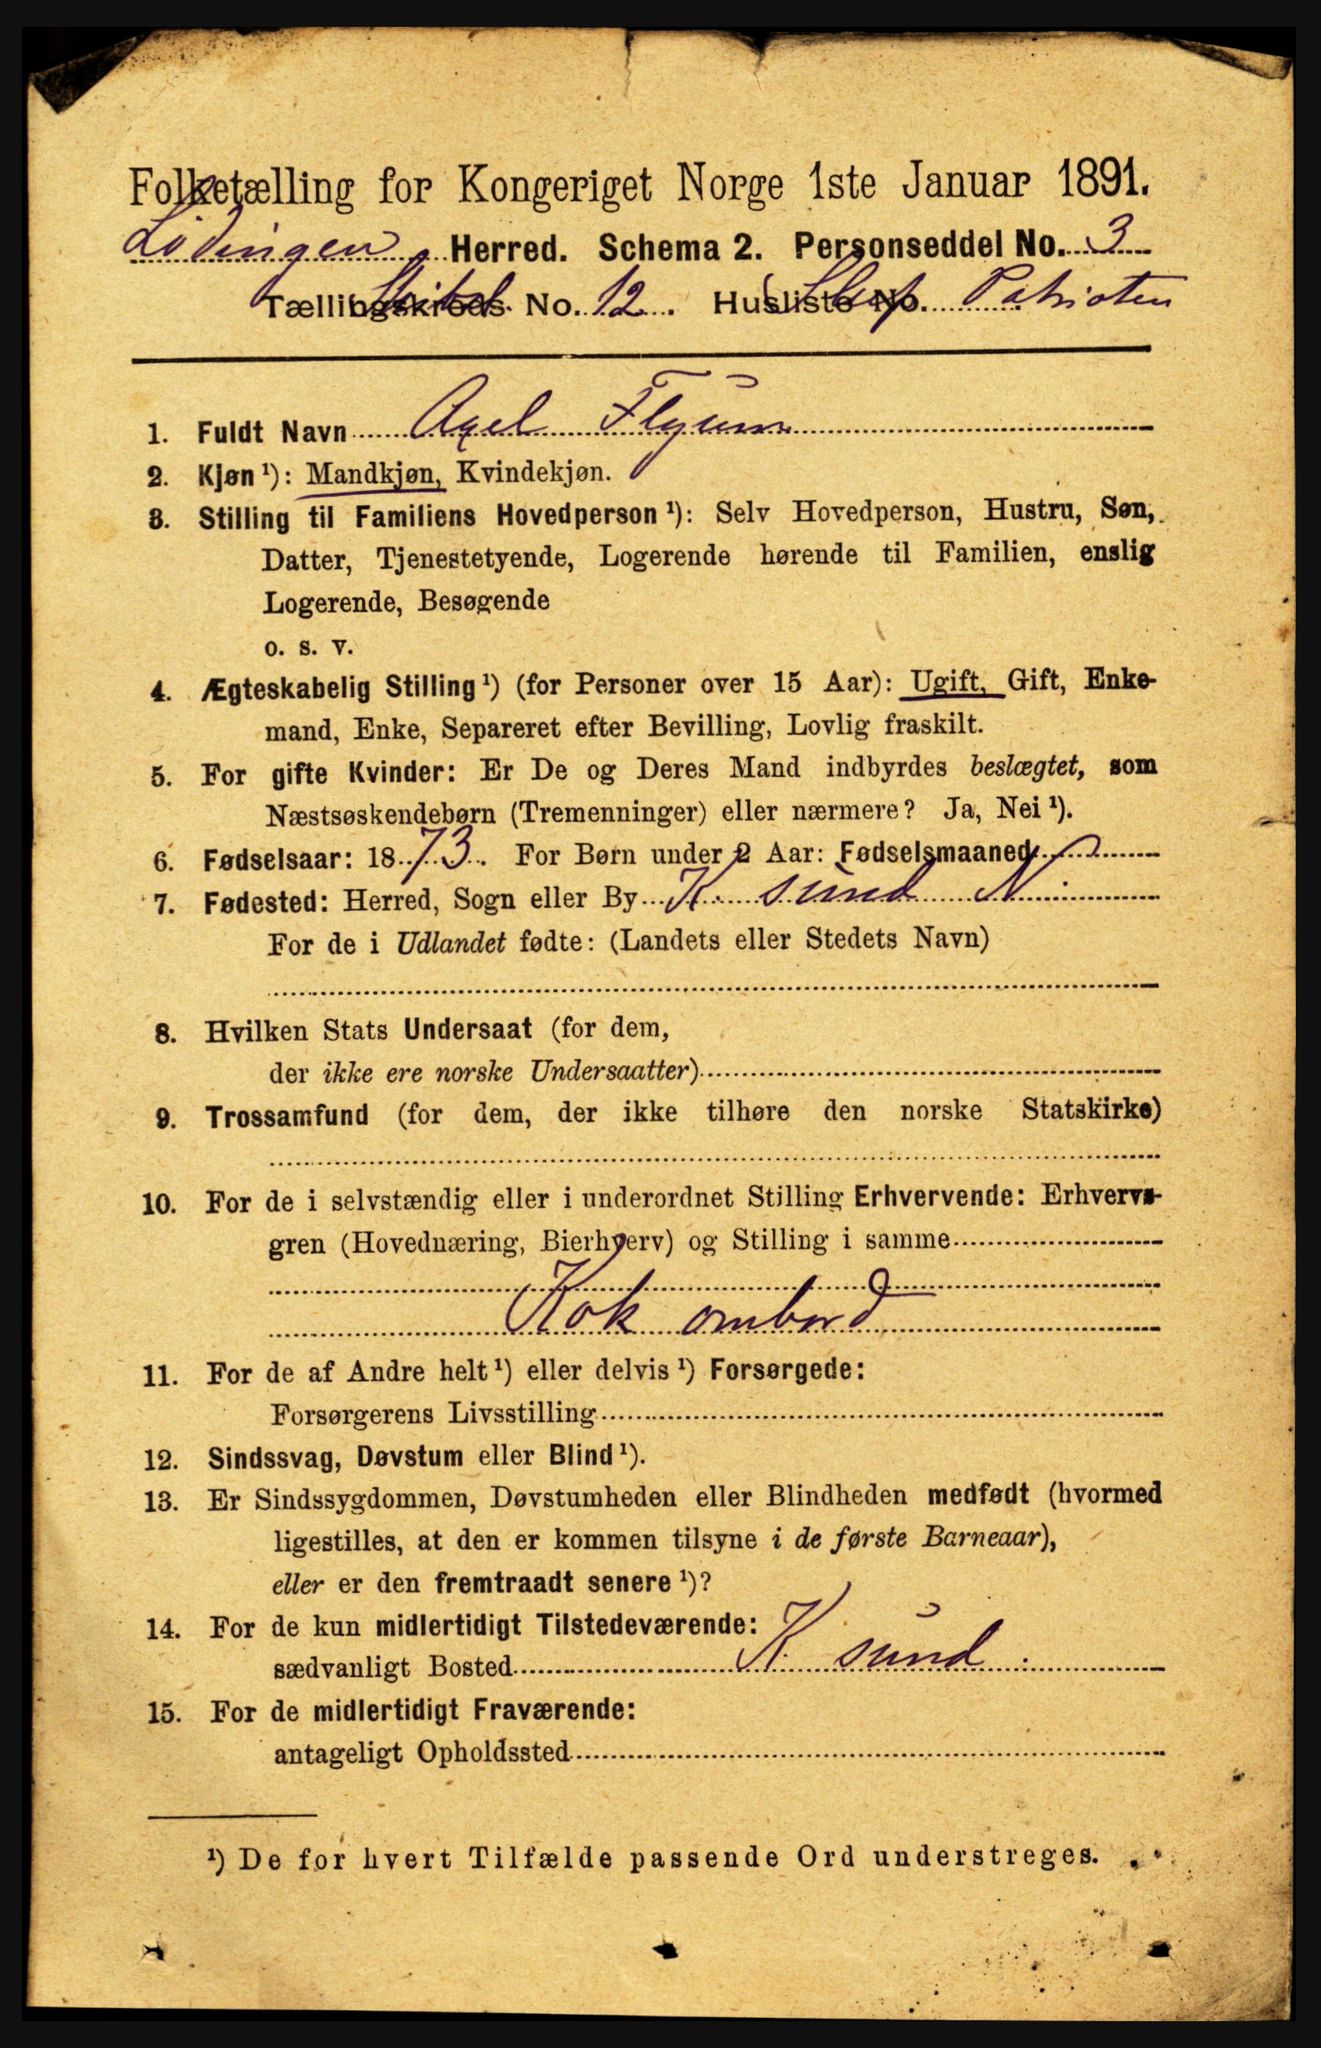 Folketælling for Kongeriget Norge 1ste Januar 1891.
Lødingen Herred. Schema 2. Personseddel No. 3
Tællingskreds No. 12. Husliste No. Slup Patrioten
1. Fuldt Navn Axel Flyum
2. Kjøn ¹): Mandkjøn, Kvindekjøn.
3. Stilling til Familiens Hovedperson ¹): Selv Hovedperson, Hustru, Søn,
Datter, Tjenestetyende, Logerende hørende til Familien, enslig
Logerende, Besøgende
o. s. v.
4. Ægteskabelig Stilling ¹) (for Personer over 15 Aar): Ugift, Gift, Enke-
mand, Enke, Separeret efter Bevilling, Lovlig fraskilt.
5. For gifte Kvinder: Er De og Deres Mand indbyrdes beslægtet, som
Næstsøskendebørn (Tremenninger) eller nærmere? Ja, Nei ¹).
6. Fødselsaar: 1873. For Børn under 2 Aar: Fødselsmaaned
7. Fødested: Herred, Sogn eller By K. sund N.
For de i Udlandet fødte: (Landets eller Stedets Navn)
8. Hvilken Stats Undersaat (for dem,
der ikke ere norske Undersaatter)
9. Trossamfund (for dem, der ikke tilhøre den norske Statskirke)
10. For de i selvstændig eller i underordnet Stilling Erhvervende: Erhvervs-
gren (Hovednæring, Bierhverv) og Stilling i samme
Kok ombord
11. For de af Andre helt ¹) eller delvis ¹) Forsørgede:
Forsørgerens Livsstilling
12. Sindssvag, Døvstum eller Blind ¹).
13. Er Sindssygdommen, Døvstumheden eller Blindheden medfødt (hvormed
ligestilles, at den er kommen tilsyne i de første Barneaar),
eller er den fremtraadt senere ¹)?
14. For de kun midlertidigt Tilstedeværende:
sædvanligt Bosted K. sund.
15. For de midlertidigt Fraværende:
antageligt Opholdssted
¹) De for hvert Tilfælde passende Ord understreges.